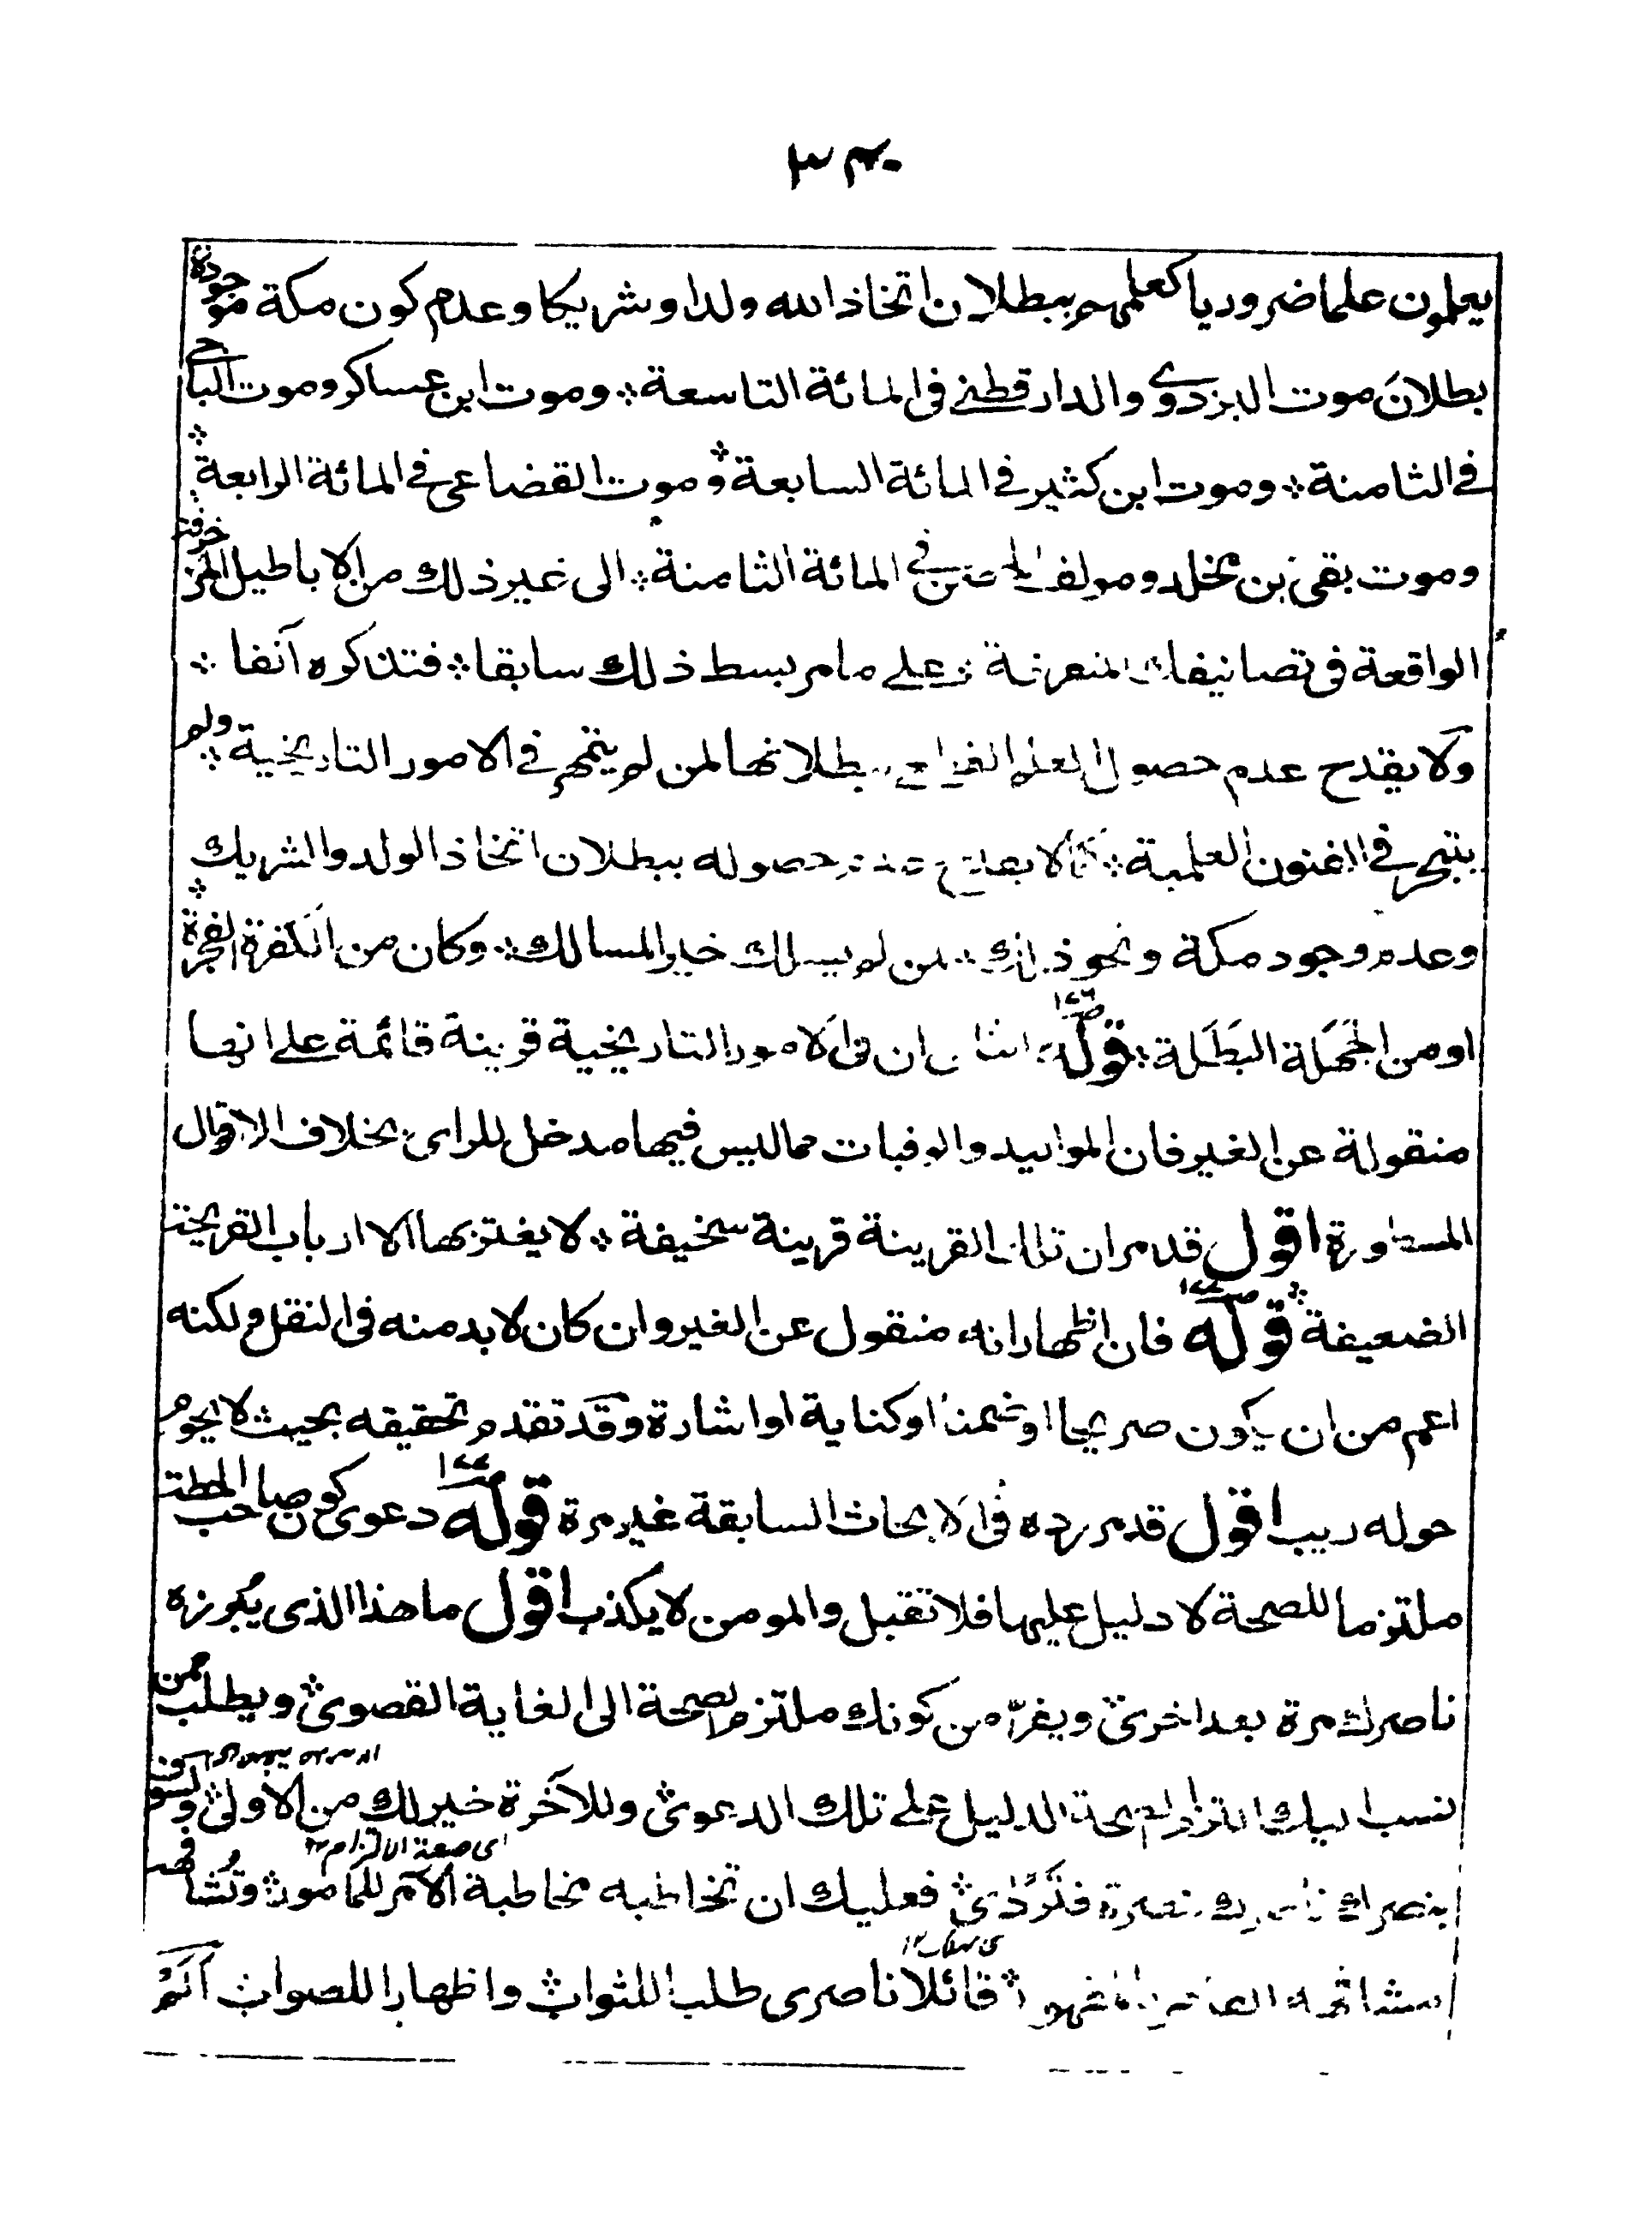 ٣٤٠
يعلمون علما ضروريا كعلمهم ببطلان اتخاذ الله ولدا وشريكا وعدم كون مكة موجودة
بطلان موت البزدوى والدارقطني في المائة التاسعة ۞ وموت ابن عساكر وموت الباجي
في الثامنة ۞ وموت ابن كثير في المائة السابعة ۞ وموت القضاعى في المائة الرابعة ۞
وموت بقى بن مخلد ومولف في المائة الثامنة ۞ الى غير ذلك من الاباطيل المزخرفة
الواقعة فى تصانيفك المتفرقة ۞ على ما مر بسط ذلك سابقا ۞ فتذكره آنفا ۞
ولا يقدح عدم حصول العلم بطلانها لمن لم يتمهر في الامور التاريخية ۞ ولم
يتبحر في الفنون العلمية ۞ كما لا يقدح عدم حصوله ببطلان اتخاذ الولد والشريك ۞
وعدم وجود مكة ونحو ذلك ۞ من لم يسلك خير المسالك ۞ وكان من الكفرة الفجرة
او من الجهلة البطلة ۞ قوله ص١٧٦ ان في الامور التاريخية قرينة قائمة على انها
منقولة عن الغير فان المواليد والوفيات مما ليس فيها مدخل للراى بخلاف الاقوال
المسطورة اقول قد مر ان تلك القرينة قرينة سخيفة ۞ لا يغتر بها الا ارباب القريحة
الضعيفة ۞ قوله ص١٧٧ فان اظهار انه منقول عن الغير وان كان لا بد منه في النقل ولكنه
اعم من ان يكون صريحا او ضمنا او كناية او اشارة وقد تقدم تحقيقه بحيث لا يحوم
حوله ريب اقول قد مر رده في الابحاث السابقة غير مرة قوله ص١٧٧ دعوى كون صاحب الحطة
ملتزما للصحة لا دليل عليها فلا تقبل والمومن لا يكذب اقول ما هذا الذى يبرزه
ناصرك مرة بعد اخرى ۞ ويفر من كونك ملتزم لصحة الى الغاية القصوى ۞ ويطلب ممن
نسب اليك التزام الصحة الدليل على تلك الدعوى ۞ وللآخرة خير لك من الاولى ۞ ولسوف
اى صفة الالتزام ١٢
ينصرك ناصرك نصرة فترضى ۞ فعليك ان تخاطبه مخاطبة الآمر للمامور ۞ وتشافهه
مشافهة القاهر المقهور ۞ قائلا ناصرى طلبا للثواب ۞ واظهارا للصواب ۞ الم